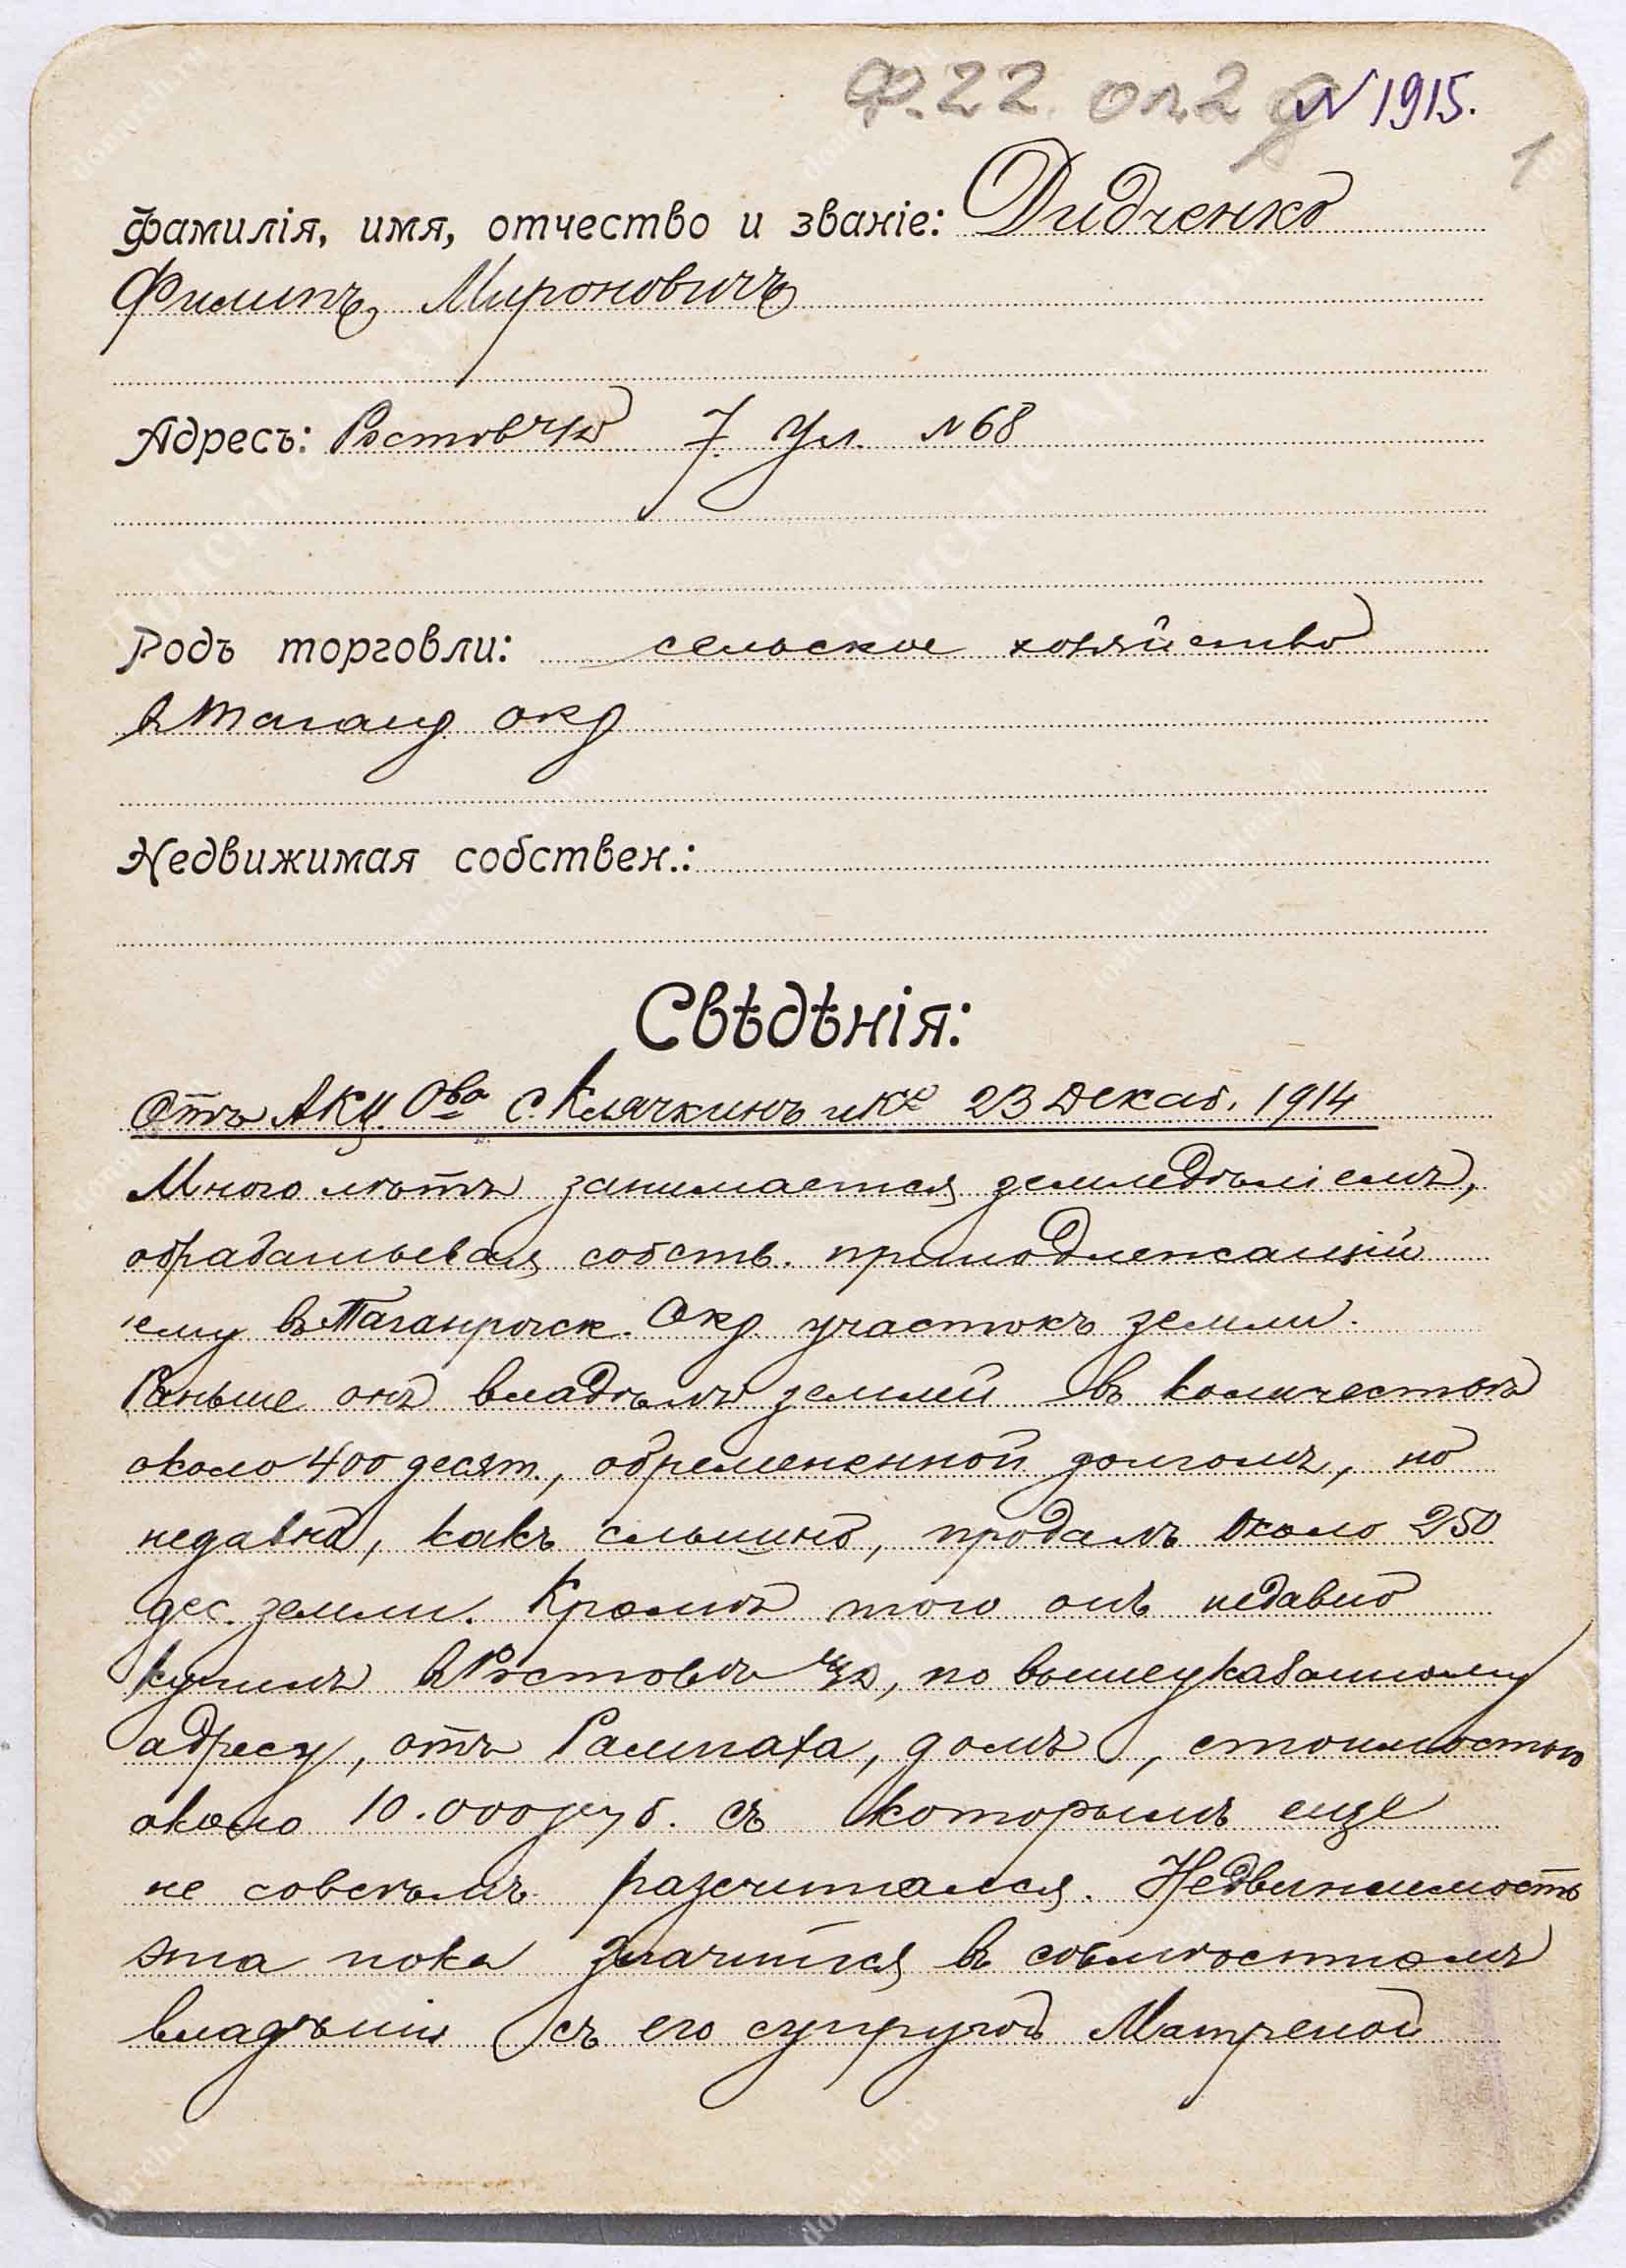 Ф. 22 оп 2 д N 1915.
1
Фамилія, имя, отчество и званіе: Дидченко
Филиппъ Мироновичъ
Адресъ: Ростовъ н/д 7. ул. N 68
Родъ торговли: сельское хозяйство
в Таганр окр
Недвижимая собствен.:
Свѣдѣнія:
Отъ Акц. О-ва С. Клячкинъ и Ко 23 Декаб. 1914
Много лѣтъ занимается земледѣліемъ,
обрабатывая собств. принадлежащій
ему въ Таганрогск. Окр. участокъ земли.
Раньше онъ владѣлъ землей въ количествѣ
около 400 десят., обремененной долгомъ, но
недавно, какъ слышно, продалъ около 250
дес. земли. Кромѣ того онъ недавно
купилъ в Ростовѣ н/д, по вышеуказанному
адресу, отъ домъ, стоимостью
около 10.000 руб. съ которымъ еще
не совсѣмъ разсчитался. Недвижимость
эта пока значится въ совмѣстномъ
владѣніи съ его супругой Матреной